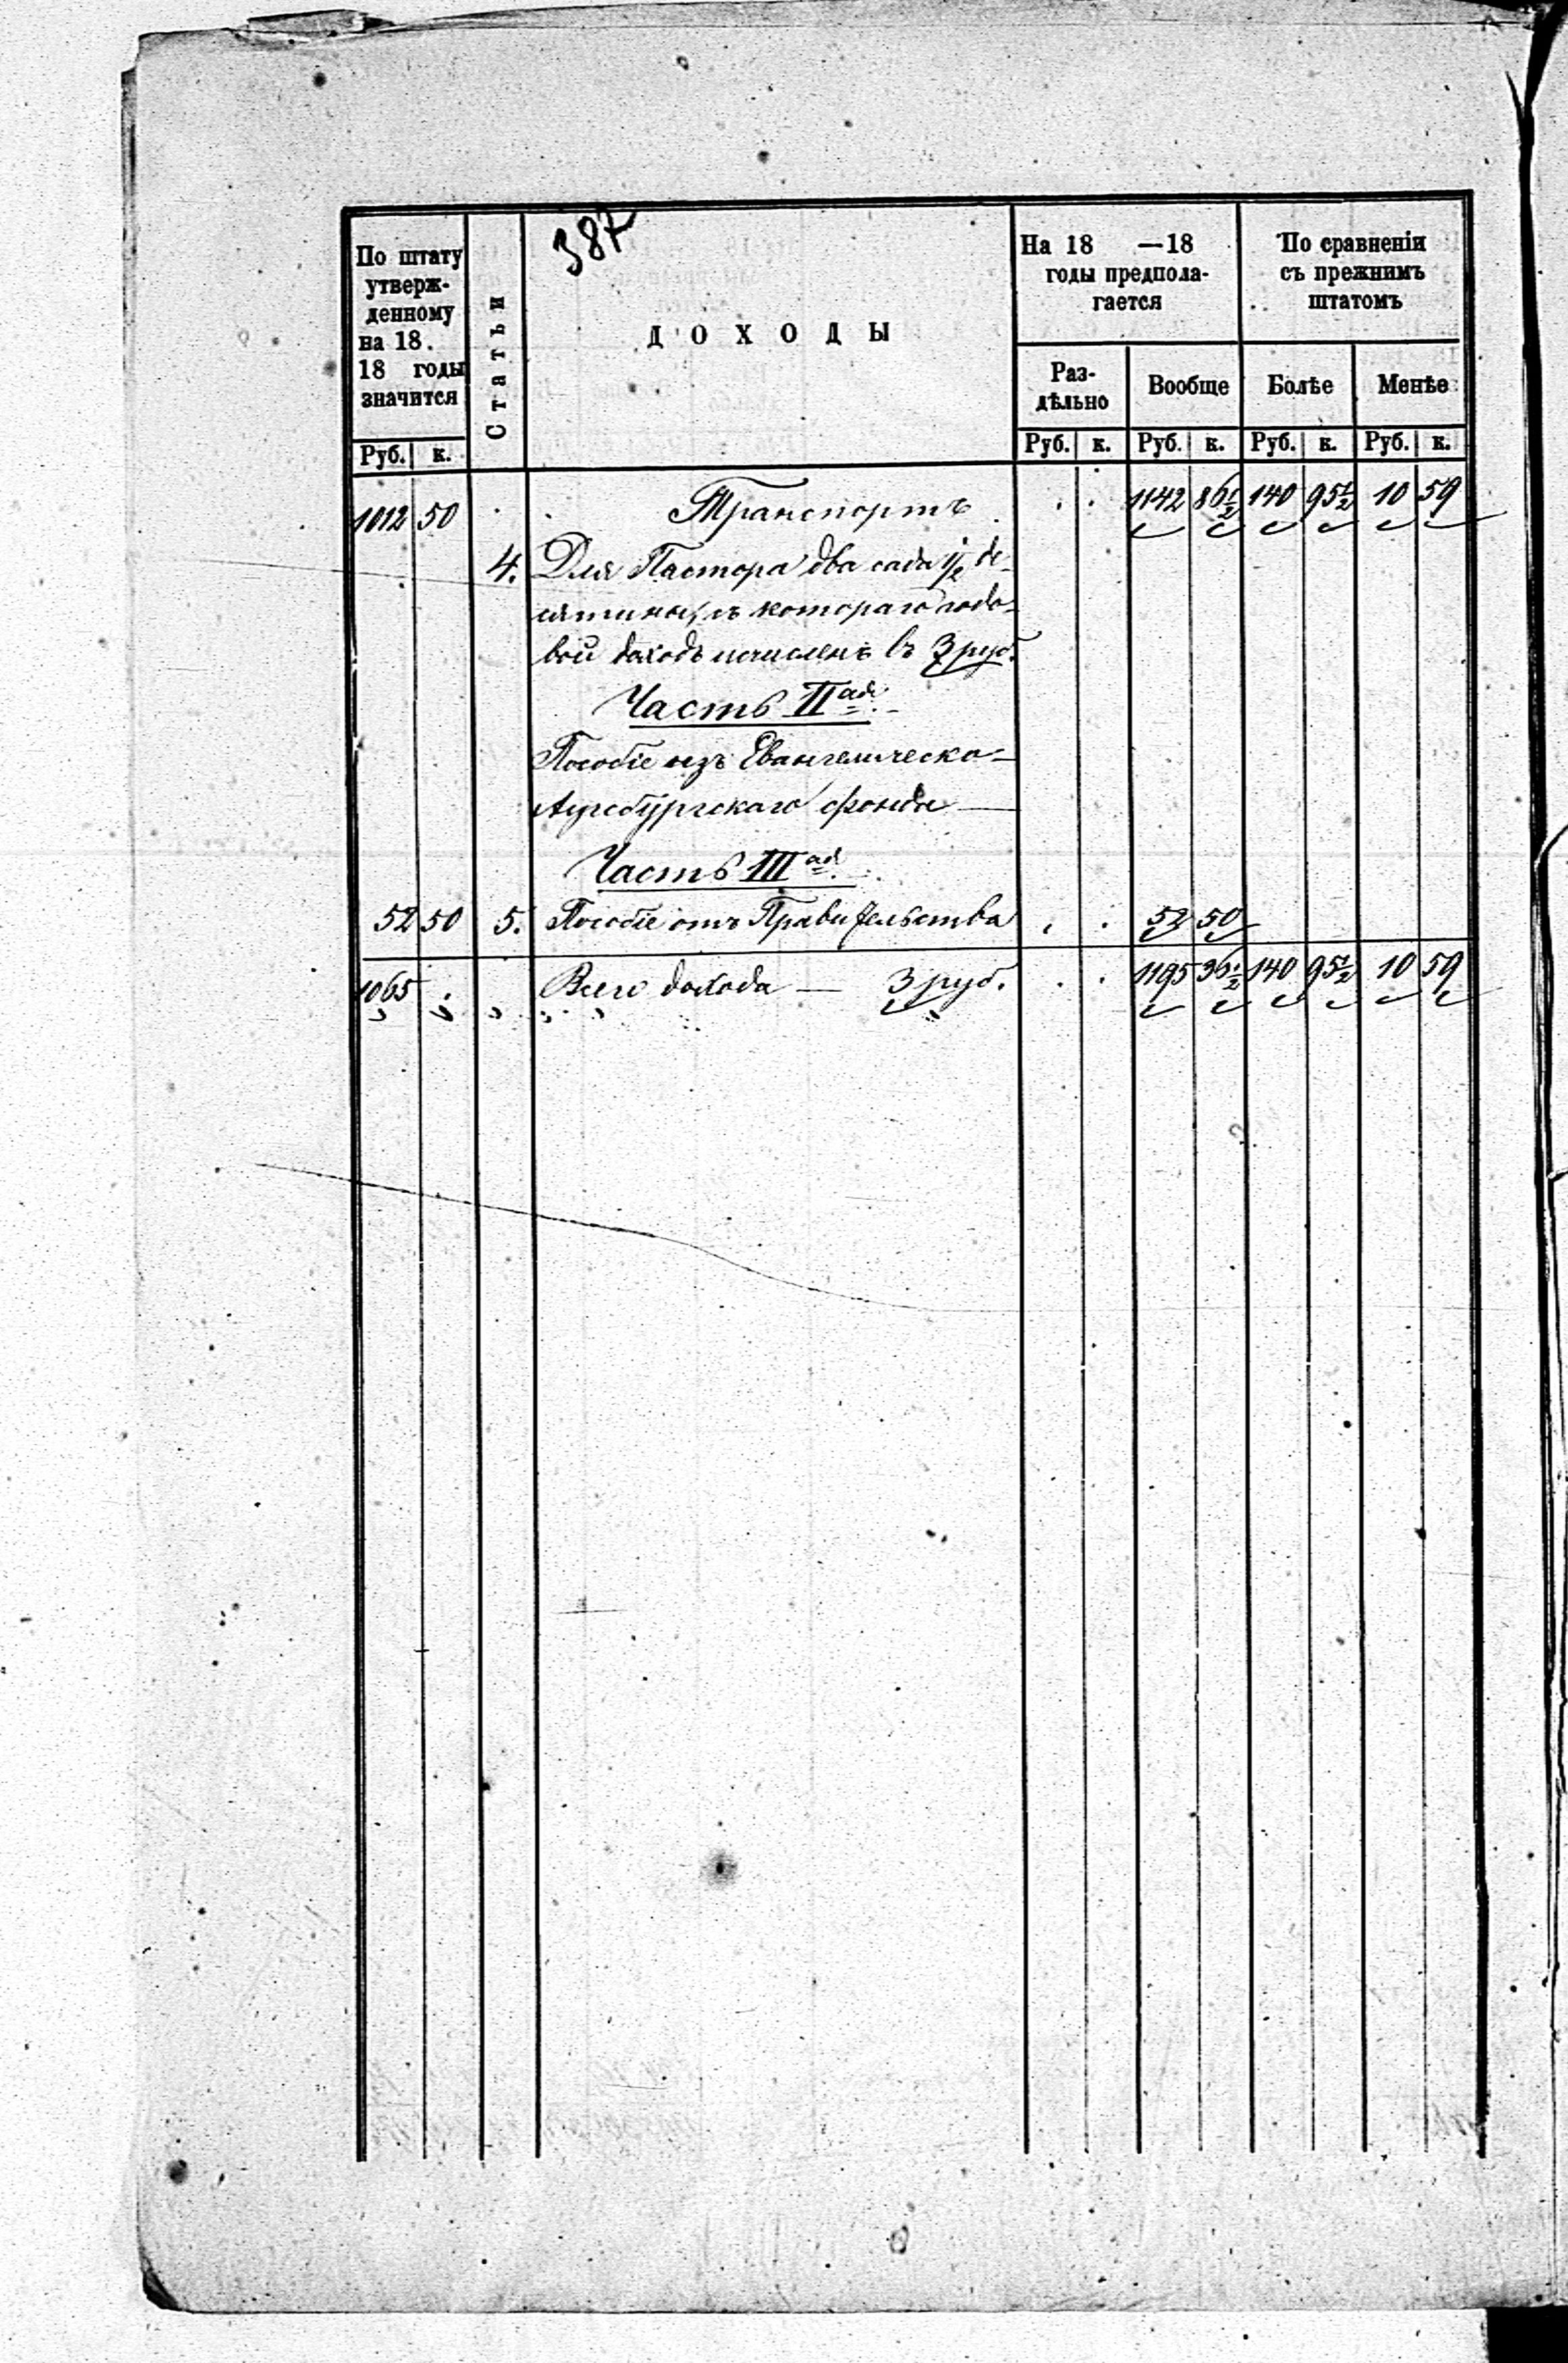 387
По штату утверж-
денному
на 18 .
18 годы
значится
Статьи
ДОХОДЫ
На 18 —18
годы предпола-
гается
По сравненіи
съ прежнимъ
штатомъ
Раз-
дѣльно
Вообще
Болѣе
Менѣе
Руб. к. Руб. к. Руб. к. Руб. к. Руб. к.
1012 50 Транспортъ 1142 86 1/2 140 95 1/2 10 59
4. Для Пастора два сада 1/2 де-
сятины, съ котораго годо-
вой доходъ исчисленъ въ 3 руб.
Часть IIая.
Пособіе изъ Евангелическо-
Аугсбургскаго фонда —
Часть IIIая.
52 50 5. Пособіе отъ Правительства 52 50
1065 . Всего дохода — 3 руб. 1195 36 1/2 140 95 1/2 10 59